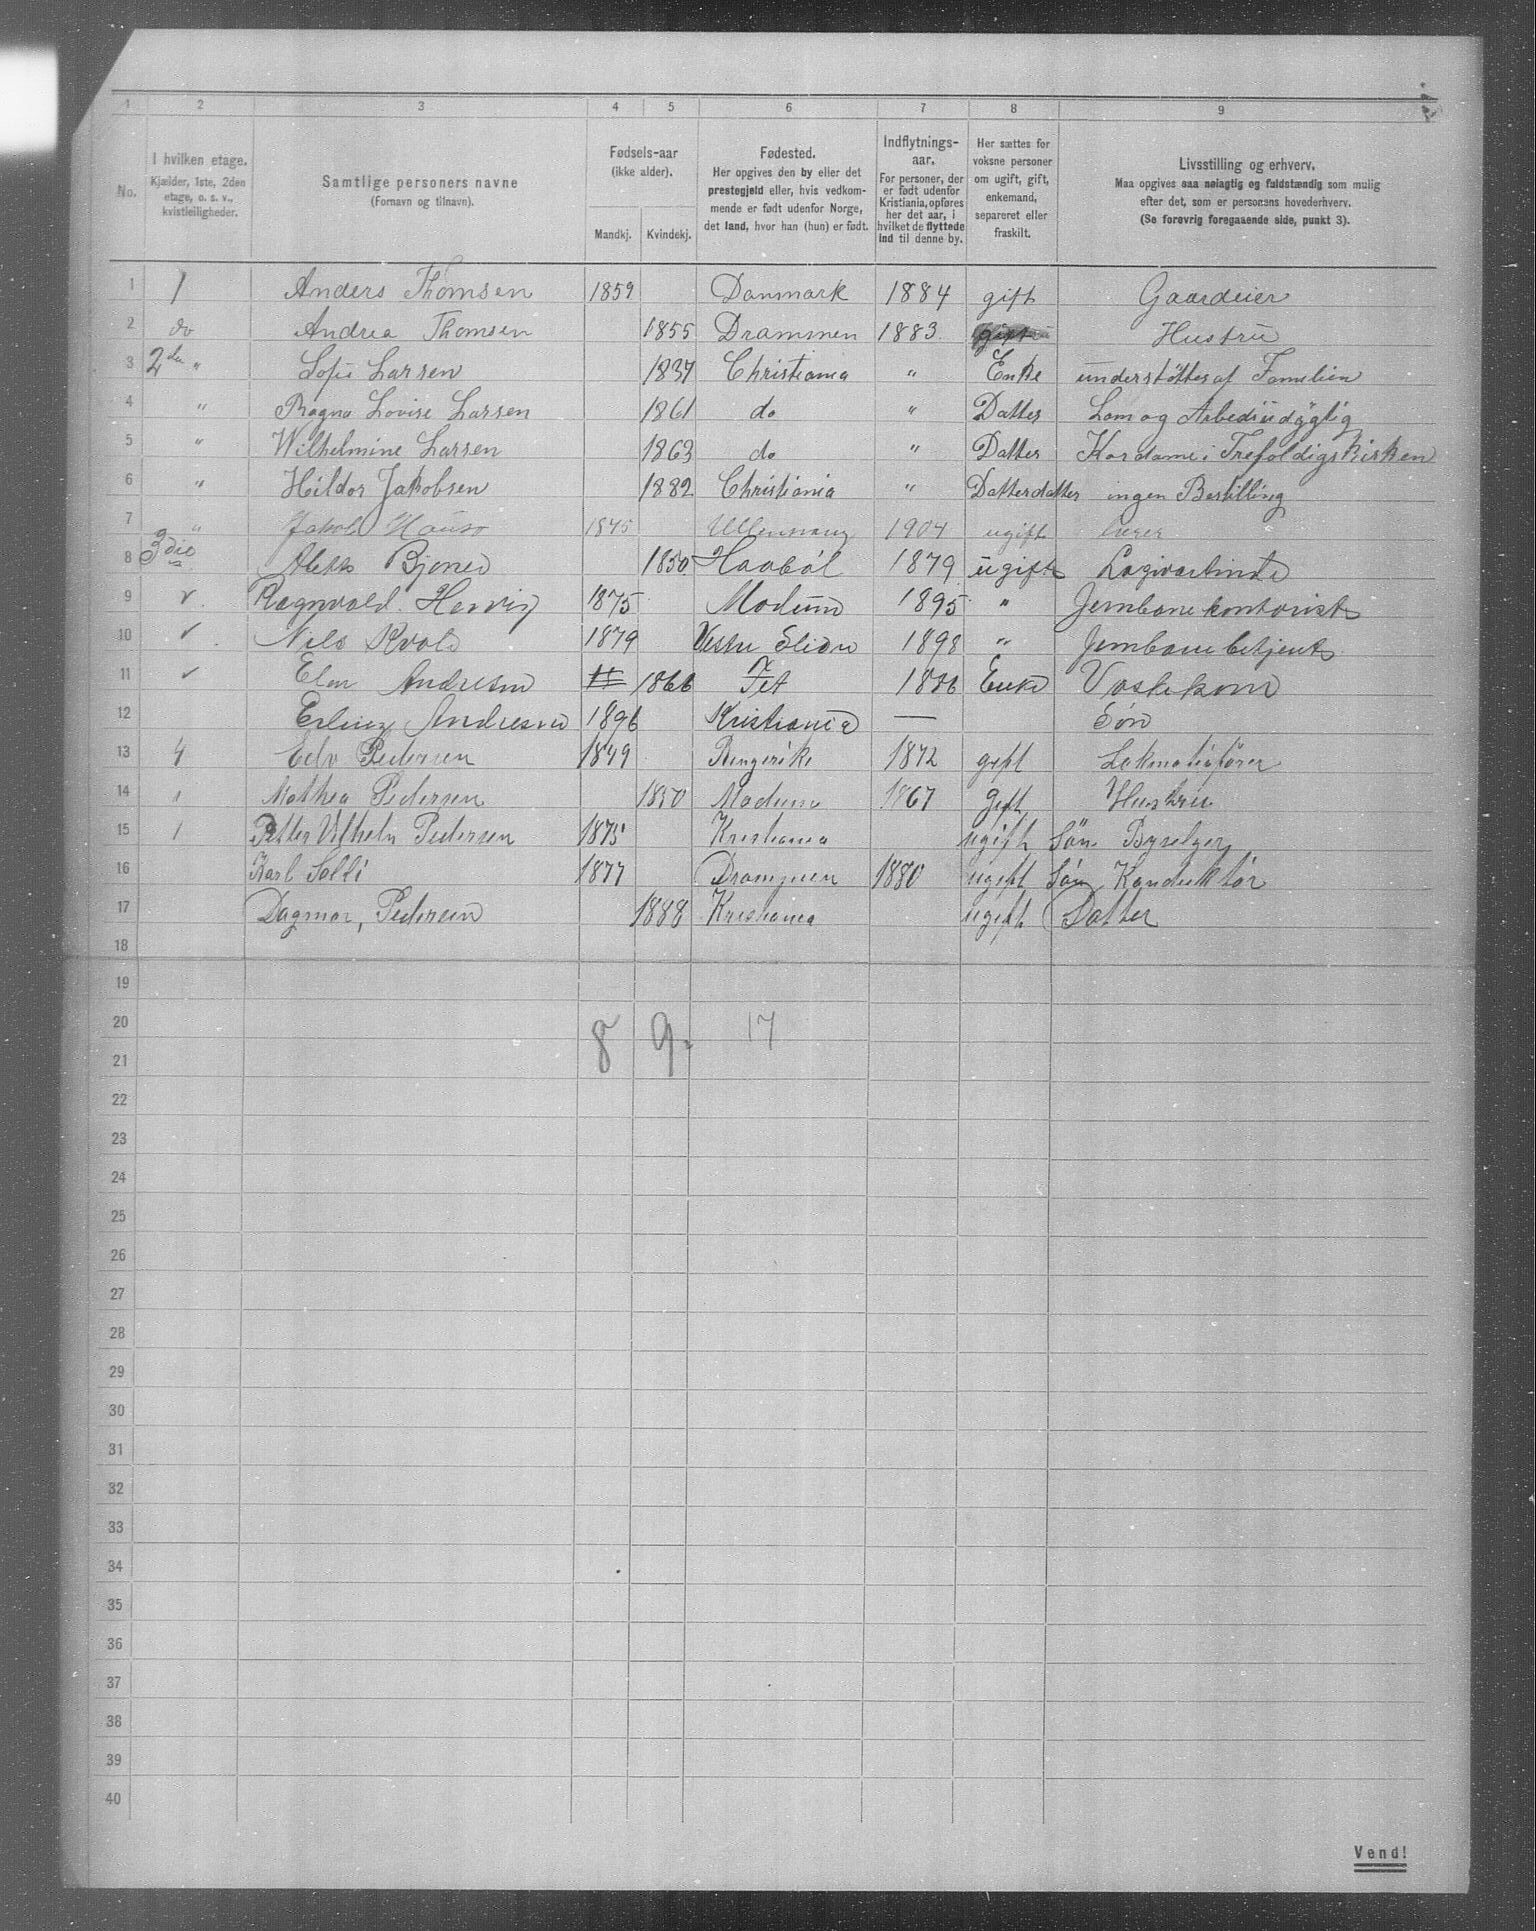 1 2 3 4 5 6 7 8 9
No.
I hvilken etage.
Kjælder, 1ste, 2den
etage, o. s. v.,
kvistleiligheder.
Samtlige personers navne
(Fornavn og tilnavn).
Fødsels-aar
(ikke alder).
Mandkj. Kvindekj.
Fødested.
Her opgives den by eller det
prestegjeld eller, hvis vedkom-
mende er født udenfor Norge,
det land, hvor han (hun) er født.
Indflytnings-
aar.
For personer, der
er født udenfor
Kristiania, opføres
her det aar, i
hvilket de flyttede
ind til denne by.
Her sættes for
voksne personer
om ugift, gift,
enkemand,
separeret eller
fraskilt.
Livsstilling og erhverv.
Maa opgives saa nøiagtig og fuldstændig som mulig
efter det, som er personens hovederhverv.
(Se forøvrig foregaaende side, punkt 3).
1 1 Anders Thomsen 1859 Danmark 1884 gift Gaardeier
2 do Andrea Thomsen 1855 Drammen 1883 Hustru
3 2den " Sofie Larsen 1837 Christiania " Enke understøttes af Familien
4 " Ragna Lovise Larsen 1861 do " Datter Lam og Arbediudygtig
5 " Wilhelmine Larsen 1863 do " Datter Kordame i Trefoldigskirken
6 " Hildor Jakobsen 1882 Christiania " Datterdatter ingen Bestilling
7 " Jakob 1845 Ullensvang 1904 ugift
8 3die Bjoner 1850 Haabøl 1879 ugift Logivertinde
9 v. Ragnvald 1875 Modum 1895 " Jernbanekontorist
10 v Nils Kvale 1879 Vestre Slidre 1898 " Jernbanebetjent
11 v Elen Andresen 1866 Fet 1886 Enke Vaskekone
12 Erling Andresen 1896 Kristiania — Søn
13 4 Edv Pedersen 1849 Ringerike 1872 gift Lokmotivfører
14 " Mathea Pedersen 1850 Modum 1867 Gift Hustru
15 " Petter Vilhelm Pedersen 1875 Kristiania ugift Søn
16 Karl Solli 1877 Drammen 1880 ugift Søn Konduktør
17 Dagmar, Pedersen 1888 Kristiania ugift Datter
18
19
20 8 9. 17
21
22
23
24
25
26
27
28
29
30
31
32
33
34
35
36
37
38
39
40
Vend!